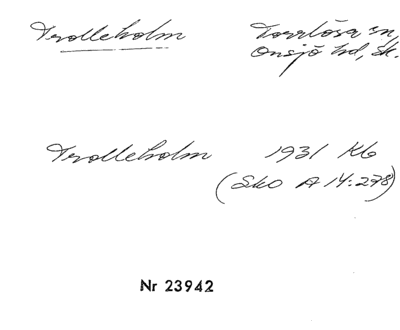 Trolleholm Torrlösa sn,
Onsjö hd, Sk.
Trolleholm 1931 Kb
(Sko A 14:278)
Nr 23942